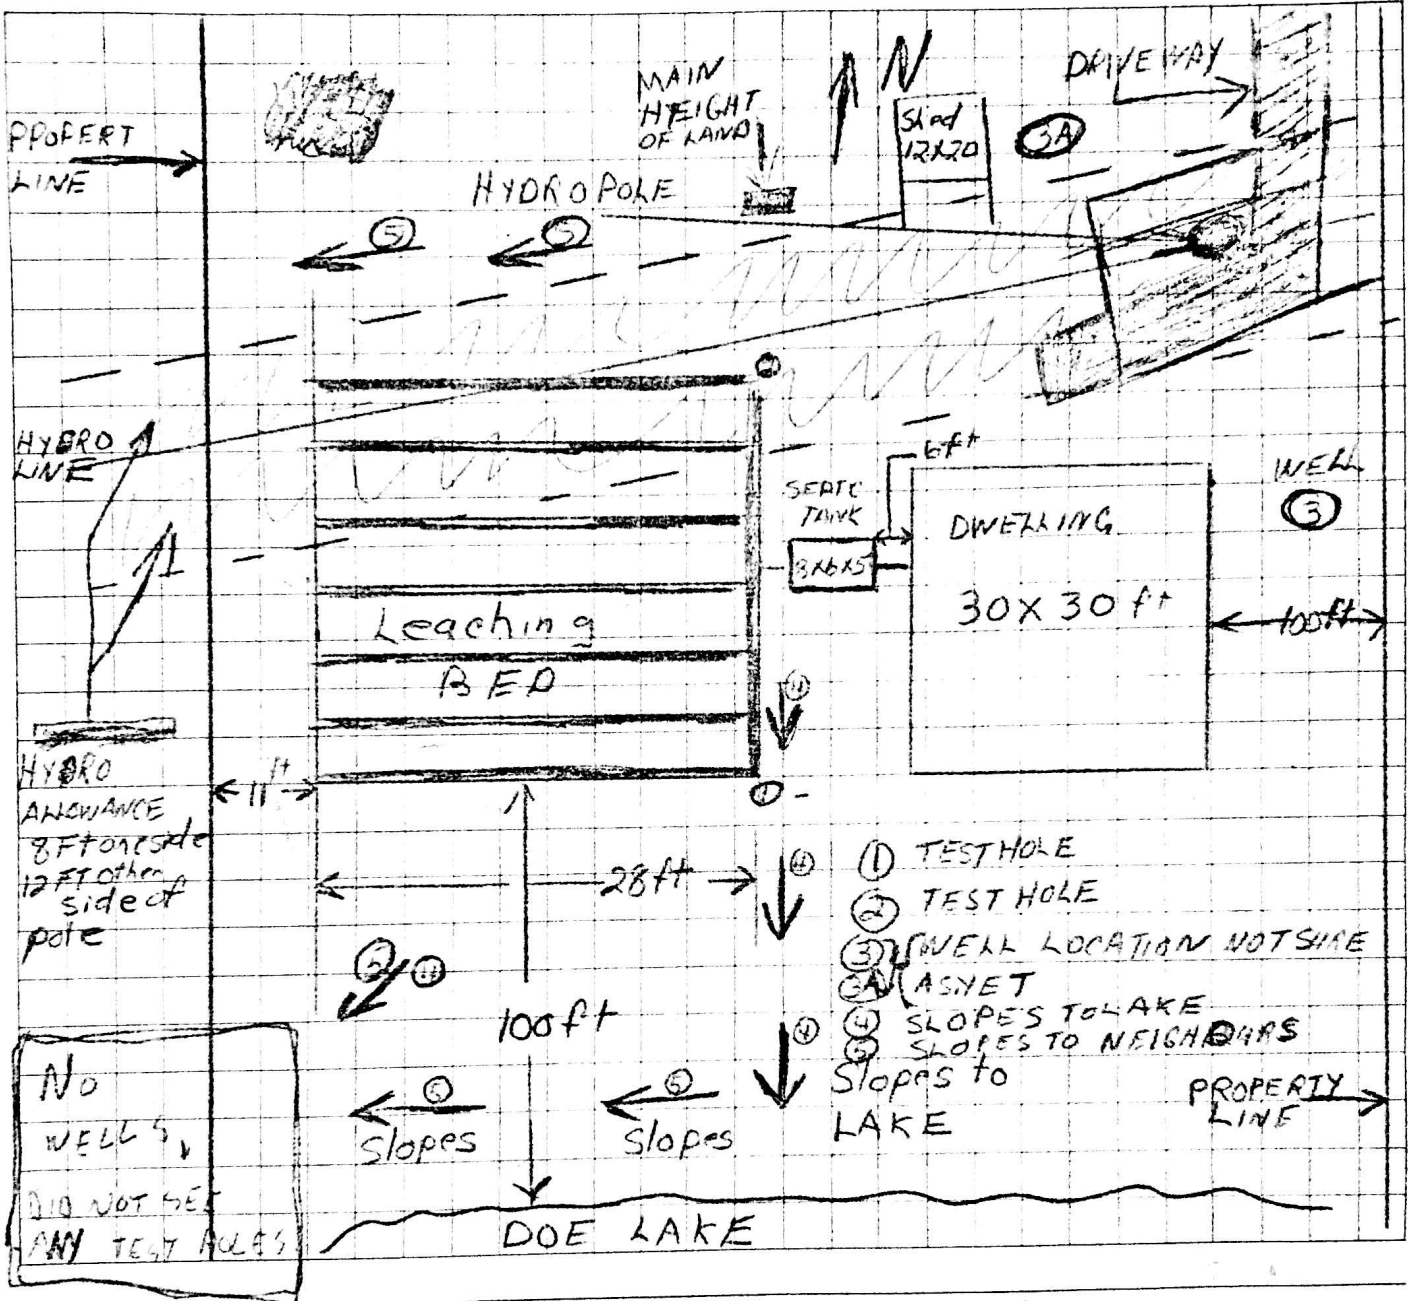 MAIN
HEIGHT
OF LAND
N
DRIVEWAY
PROPERT
LINE
Shed
12X20
3A
HYDRO POLE
5
5
2
HYDRO
LINE
6ft
SEPTC
TANK
8X6X5
DWELLING
30X30 ft
WELL
3
100ft
Leaching
BED
4
HYDRO
ALLOWANCE
8Ft one side
12 FT other
side of
pole
11 ft
1
28ft
4
1 TEST HOLE
2 TEST HOLE
3 WELL LOCATION NOT SURE
3A AS YET
4 SLOPES TO LAKE
5 SLOPES TO NEIGHBOURS
5 4
100ft
4
Slopes to
LAKE
PROPERTY
LINE
5
Slopes
5
Slopes
No
WELLS,
DID NOT SEE
ANY TEST HOLES
DOE LAKE